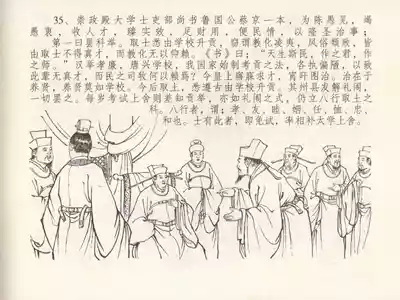 35、崇政殿大学士吏部尚书鲁国公蔡京一本,为陈愚见,竭
愚衷,收人才,臻实效,足财用,便民情,以隆圣治事:
第一曰罢科举。取士悉由学校升贡,窃谓教化凌夷,风俗颓败,皆
由取士不得真才,而教化无以仰赖。《书》曰:“天生斯民,作之君,作
之师。”汉举孝廉,唐兴学校,我国家始制考贡之法,各执偏陋,以致
此辈无真才,而民之司牧何以赖焉?今皇上寤寐求才,宵旰图治。治在于
养贤,养贤莫如学校。今后取士,悉遵古由学校升贡。其州县发解礼闱,
一切罢之。每岁考试上舍则差知贡举,亦如礼闱之式,仍立八行取士之
科。八行者,谓:孝、友、睦、姻、任、恤、忠、
和也。士有此者,即免试,率相补太学上舍。